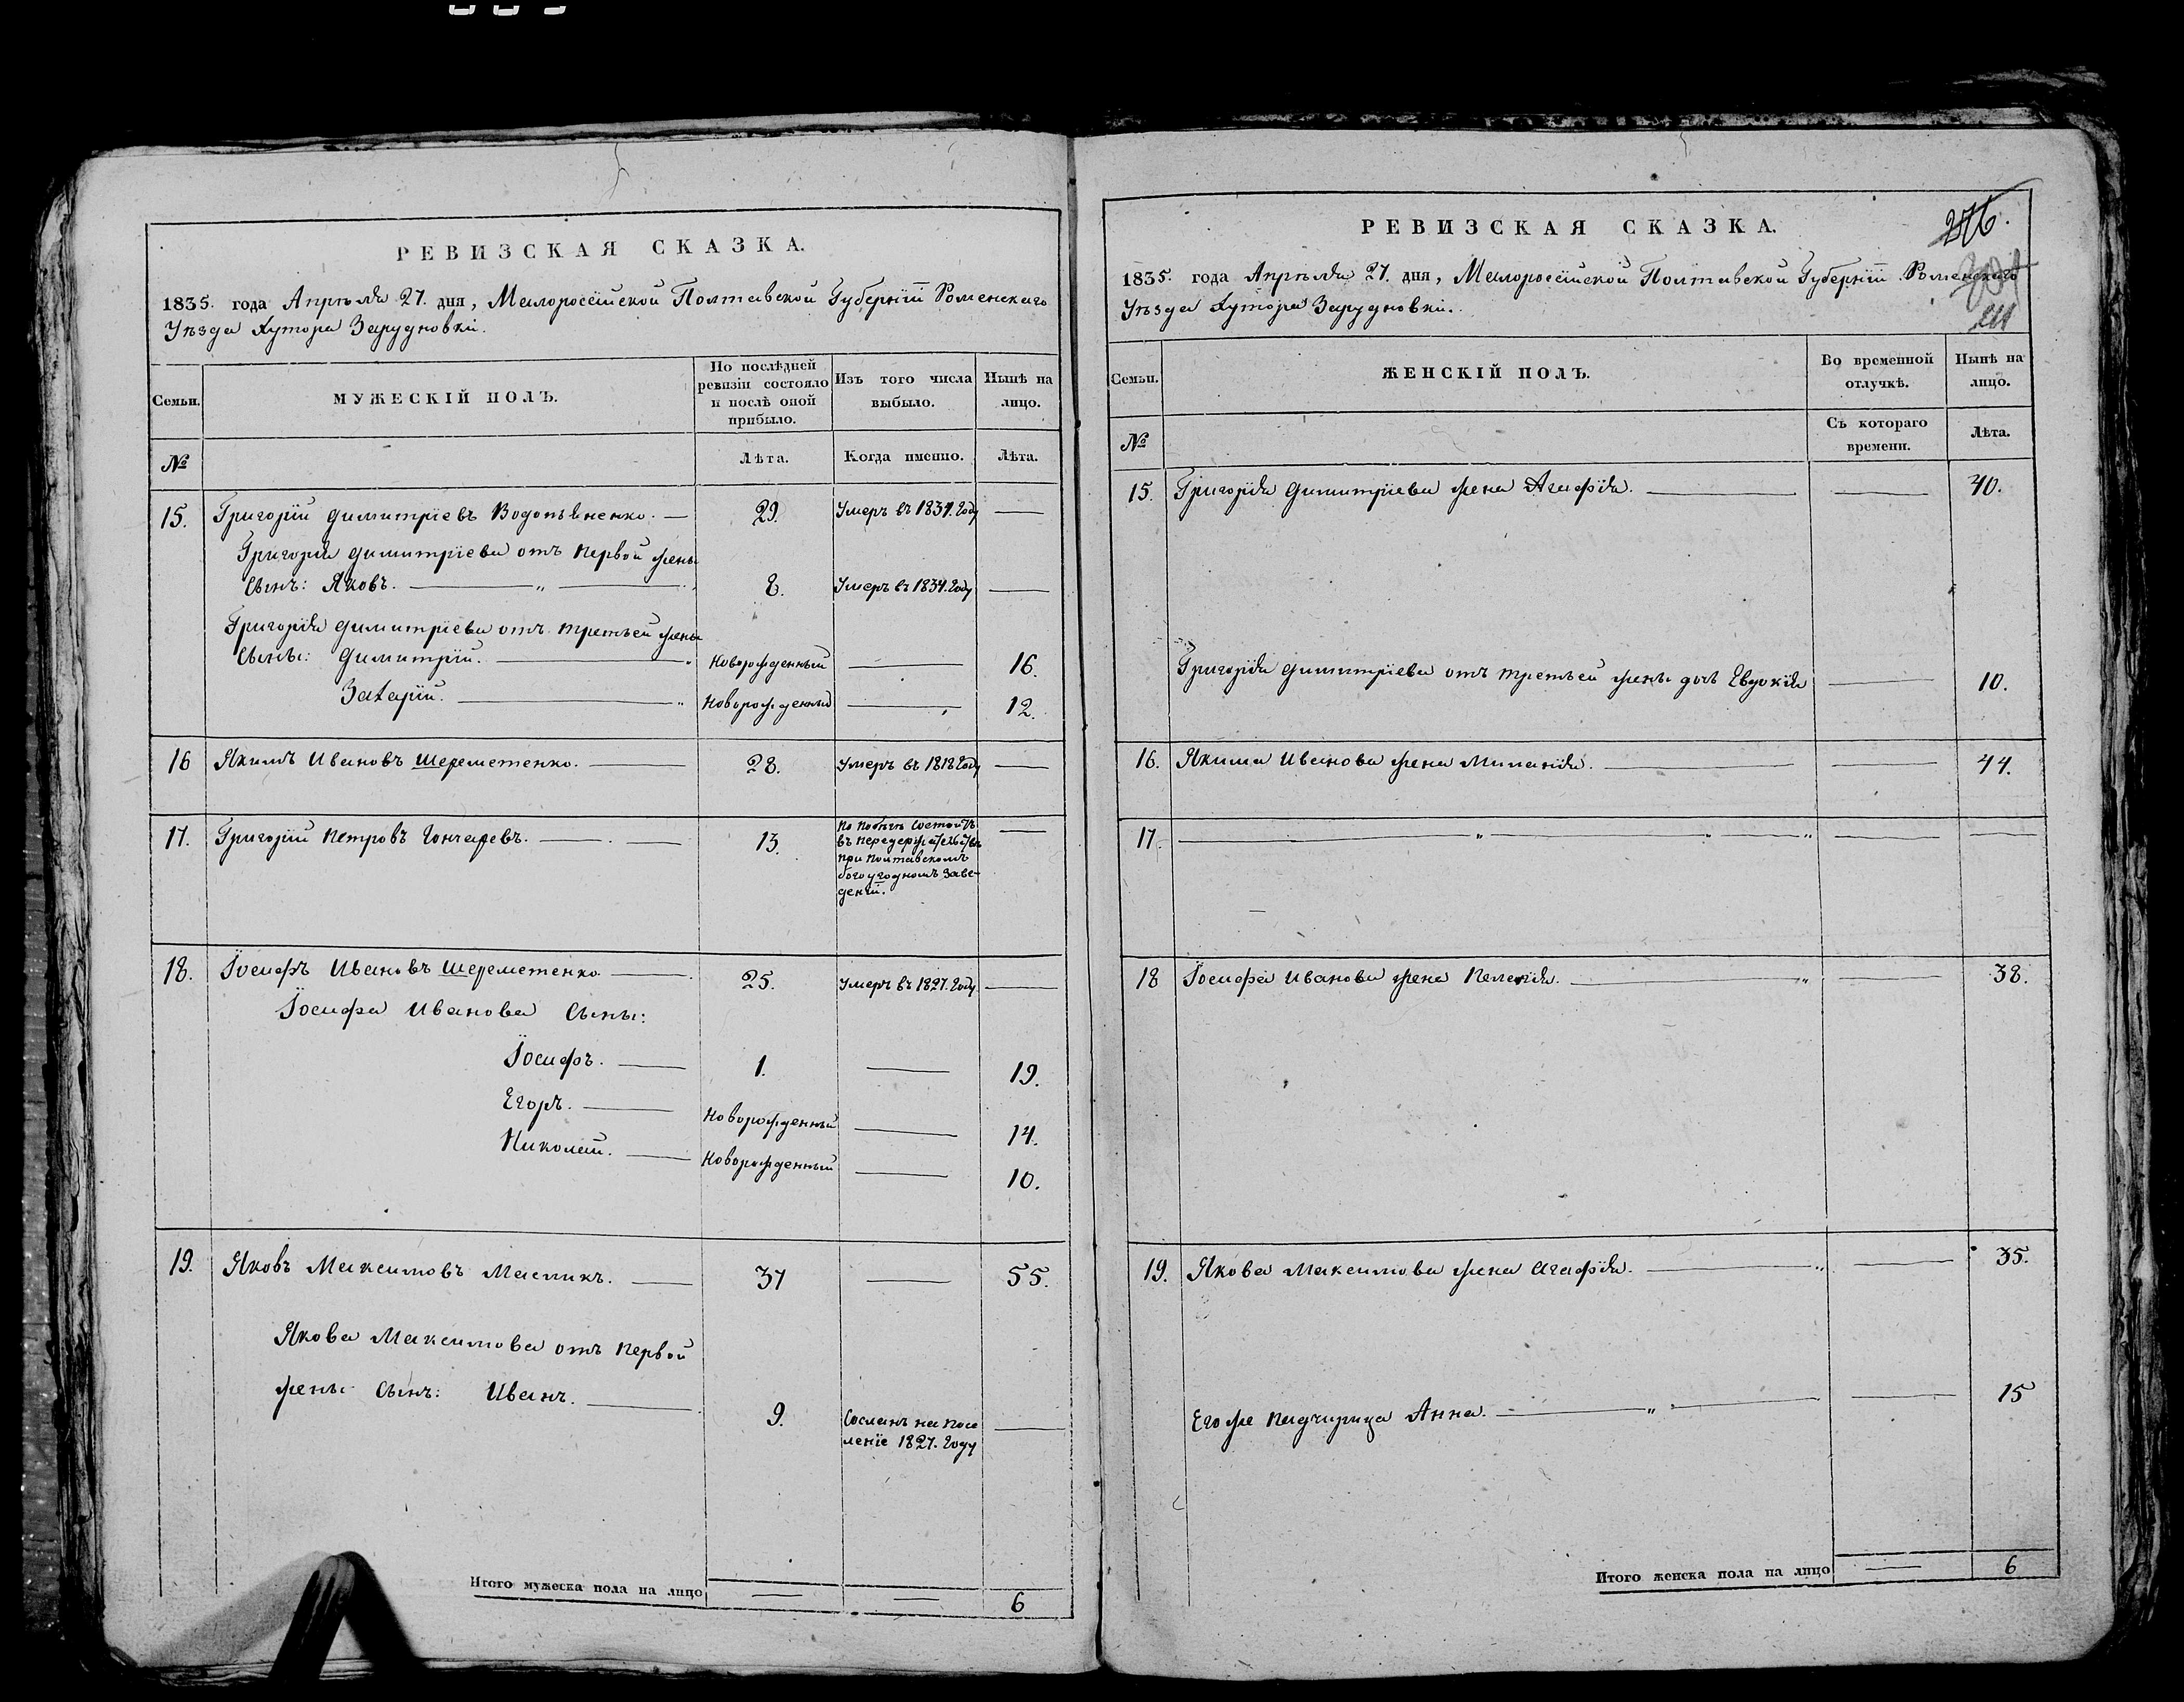 РЕВИЗСКАЯ СКАЗКА.
1835. года Апрѣля 27. дня, Малороссійской Полтавской Губерніи Роменскаго
Уѣзда Хутора Зарудновки.
Семьи.
МУЖЕСКІЙ ПОЛЪ.
По послѣдней
ревизіи состояло
и послѣ оной
прибыло.
Изъ того числа
выбыло.
Нынѣ на
лицо.
№
Лѣта.
Когда именно.
Лѣта.
15. Григорій Димитріевъ Водопьяненко. — 29. Умеръ въ 1834. Году —
Григорія Димитріева отъ первой жены
сынъ: Яковъ. — „ — 8. Умеръ въ 1834. Году —
Григорія Димитріева отъ третьей жены
сыны: Димитрій. — Новорожденный — 16.
Захарій. — Новорожденный — 12.
16 Якимъ Ивановъ Шереметенко. — 28. Умеръ въ 1818 Году —
17. Григорій Петровъ Гончаревъ. — 13. —
По побѣгѣ состоитъ
въ
при Полтавскомъ
богоугодномъ заве-
деніи.
18. Іосифъ Ивановъ Шереметенко — 25. Умеръ въ 1827. Году —
Іосифа Иванова сыны:
Іосифъ. — 1. — 19.
Егоръ. — Новорожденный — 14.
Николай. — Новорожденный — 10.
19. Яковъ Максимовъ Масликъ. — 37 — 55.
Якова Максимова отъ первой
жены сынъ: Иванъ. — 9. —
Сосланъ на посе
леніе 1827. Году
Итого мужеска пола на лицо — — 6
РЕВИЗСКАЯ СКАЗКА.
1835. года Апрѣля 27. дня, Малороссійской Полтавской Губерніи Роменскаго
Уѣзда Хутора Зарудновки.
Семьи.
ЖЕНСКІЙ ПОЛЪ.
Во временной
отлучкѣ.
Нынѣ на
лицо.
№
Съ котораго
времени.
Лѣта.
15. Григорія Димитріева жена Агафія. — — 40.
Григорія Димитріева отъ третьей жены дочь Евдокія — 10.
16. Якима Иванова жена Миланія. — — 44.
17 — „ — „ — „ — —
18 Іосифа Иванова жена Пелагія. — „ — 38.
19. Якова Максимова жена Агафія. — „ — 35.
Его же падчирица Анна. — „ — — 15
Итого женска пола на лицо — 6